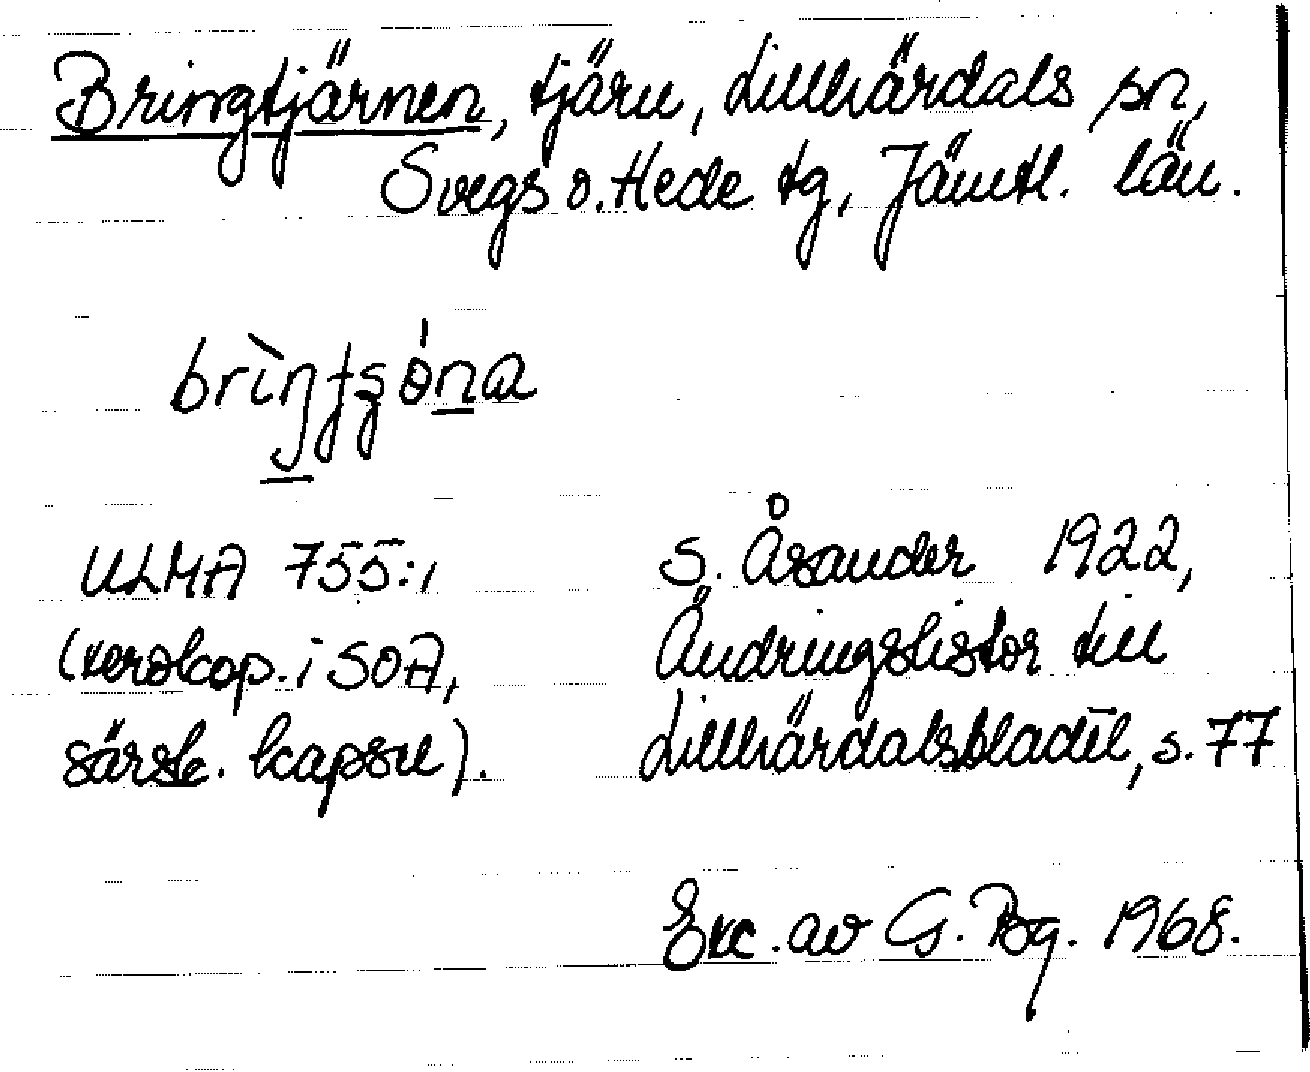 Bringtjärnen, tjärn, Lillhärdals sn,
Svegs o. Hede tg, Jämtl. län.
ULMA 755:1
(xerokop. i SOA,
särsk. kapsel).
S. Åsander 1922,
Ändringslistor till
Lillhärdalsbladet, s. 77
Exc. av G. Bg. 1968.